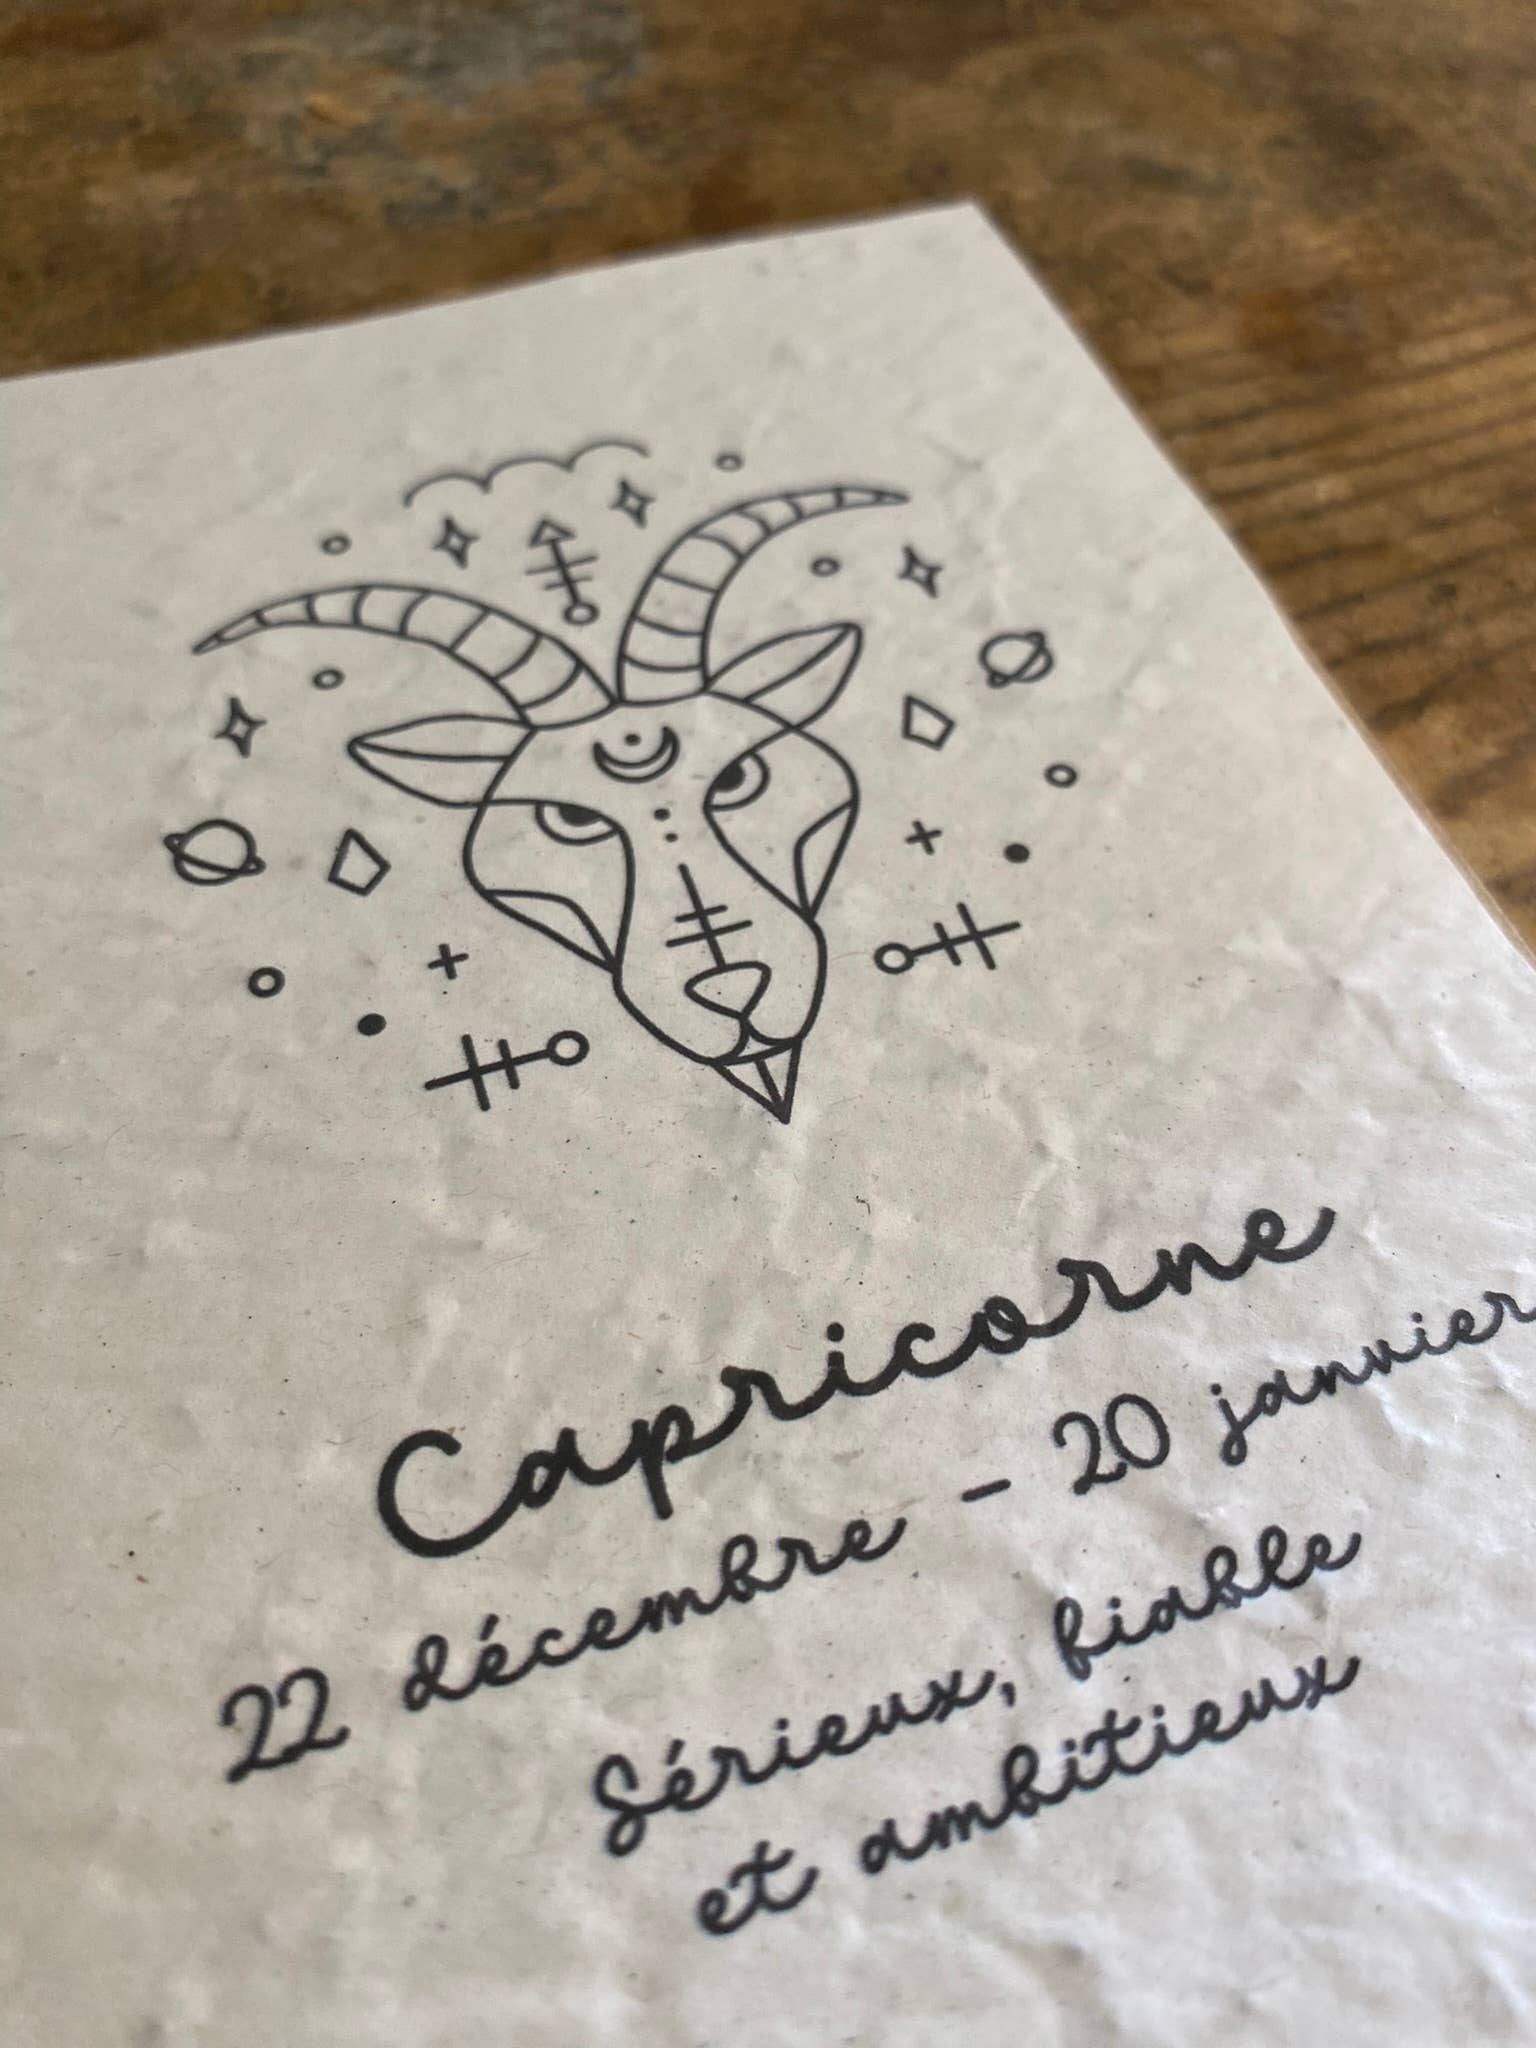 Capricorne
22 décembre - 20 janvier
Sérieux, fiable
et ambitieux